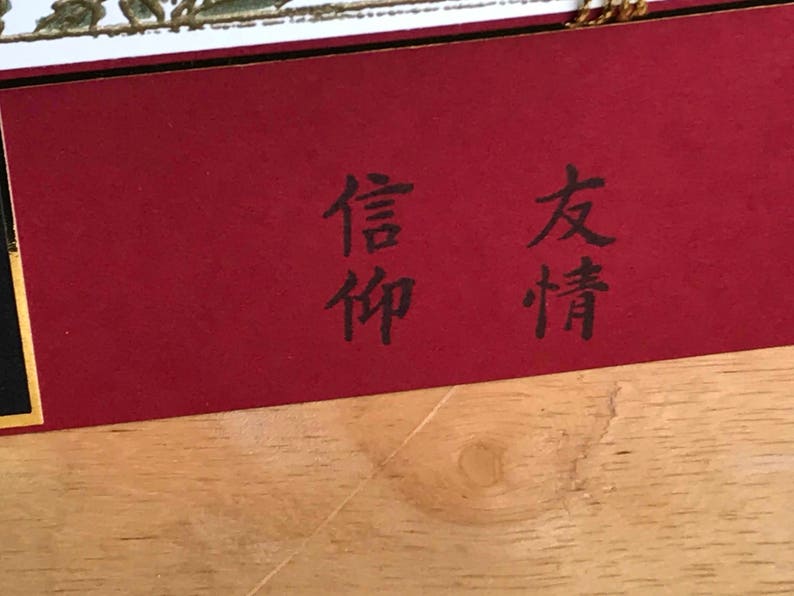 友情
信仰